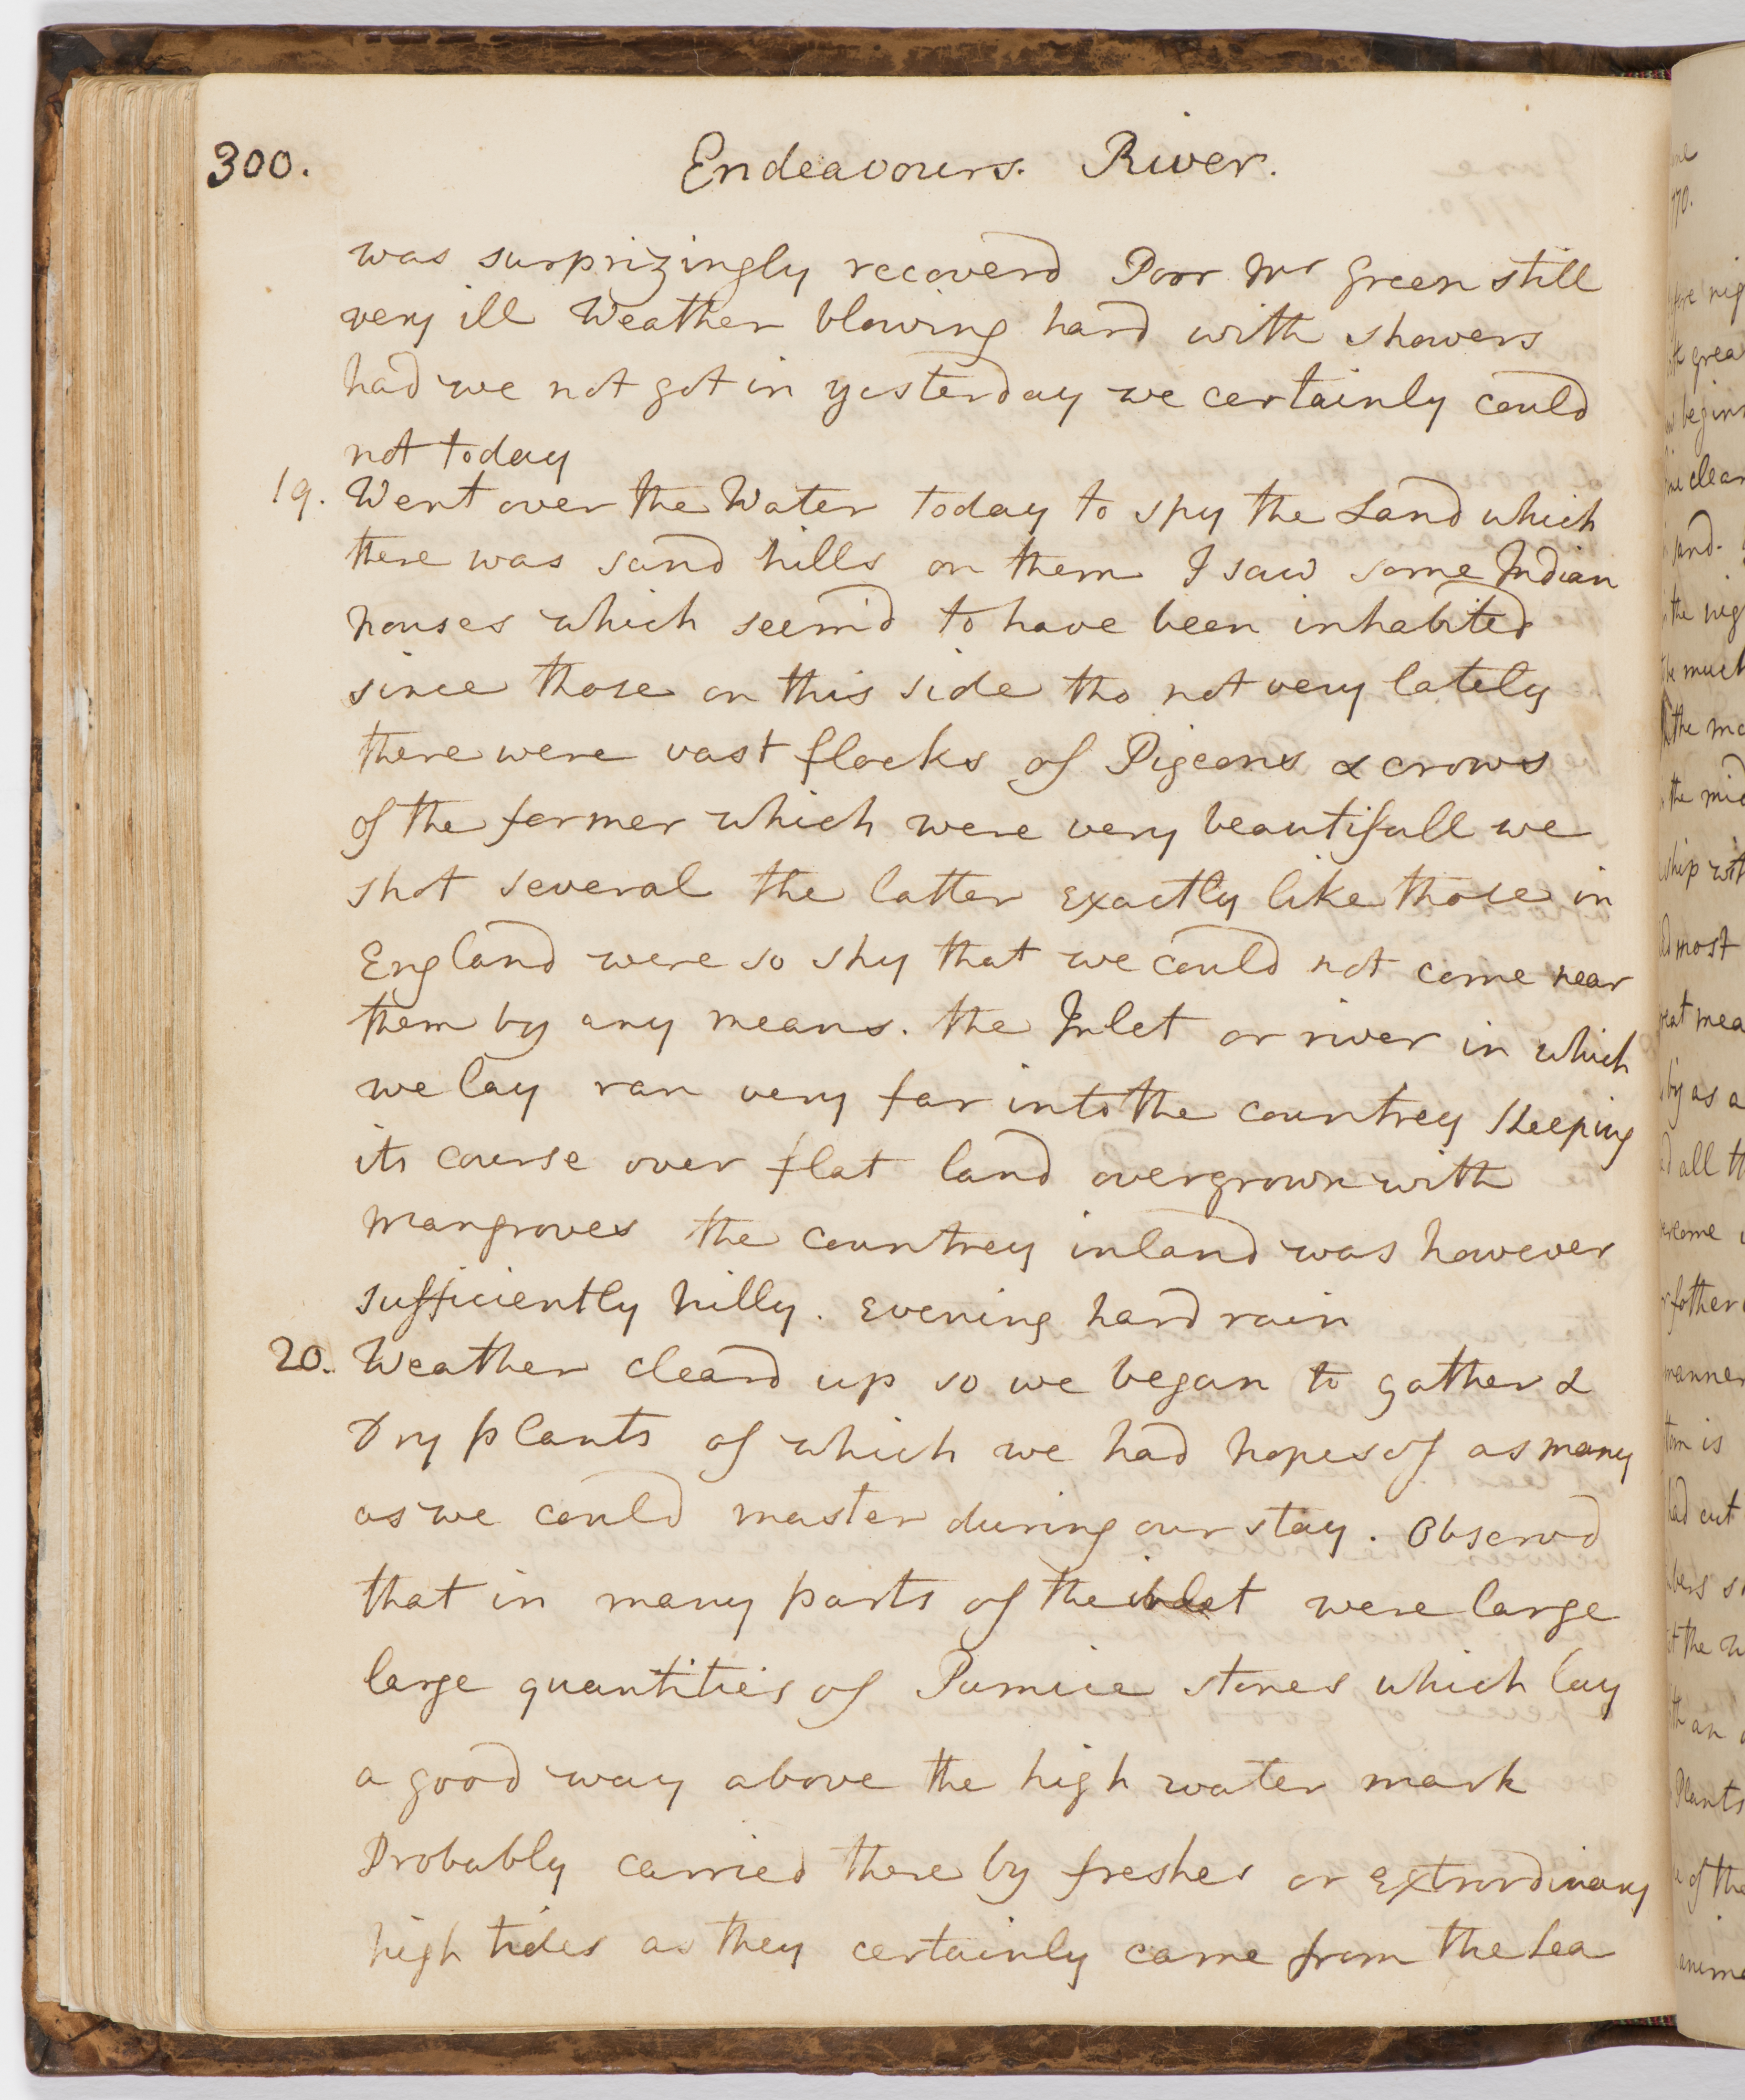 300.
Endeavours. River.
was surprizingly recoverd Poor Mr Green still
very ill Weather blowing hard with showers
had we not got in yesterday we certainly could
not today
19. Went over the Water today to spy the Land which
there was sand hills on them I saw some Indian
houses which seem'd to have been inhabited
since those on this side tho not very lately
there were vast flocks of Pigeons & crows
of the former which were very beautifull we
shot several the latter exactly like those in
England were so shy that we could not come near
them by any means. the Inlet or river in which
we lay ran very far into the countrey
its course over flat land overgrown with
mangroves the countrey inland was however
sufficiently hilly. Evening hard rain
20. Weather cleard up so we began to gather &
Dry plants of which we had hopes of as many
as we could master during our stay. Observd
that in many parts of the inlet were large
large quantities of Pumice stones which lay
a good way above the high water mark
Probably carried there by freshes or extrordinary
high tides as they certainly came from the Sea